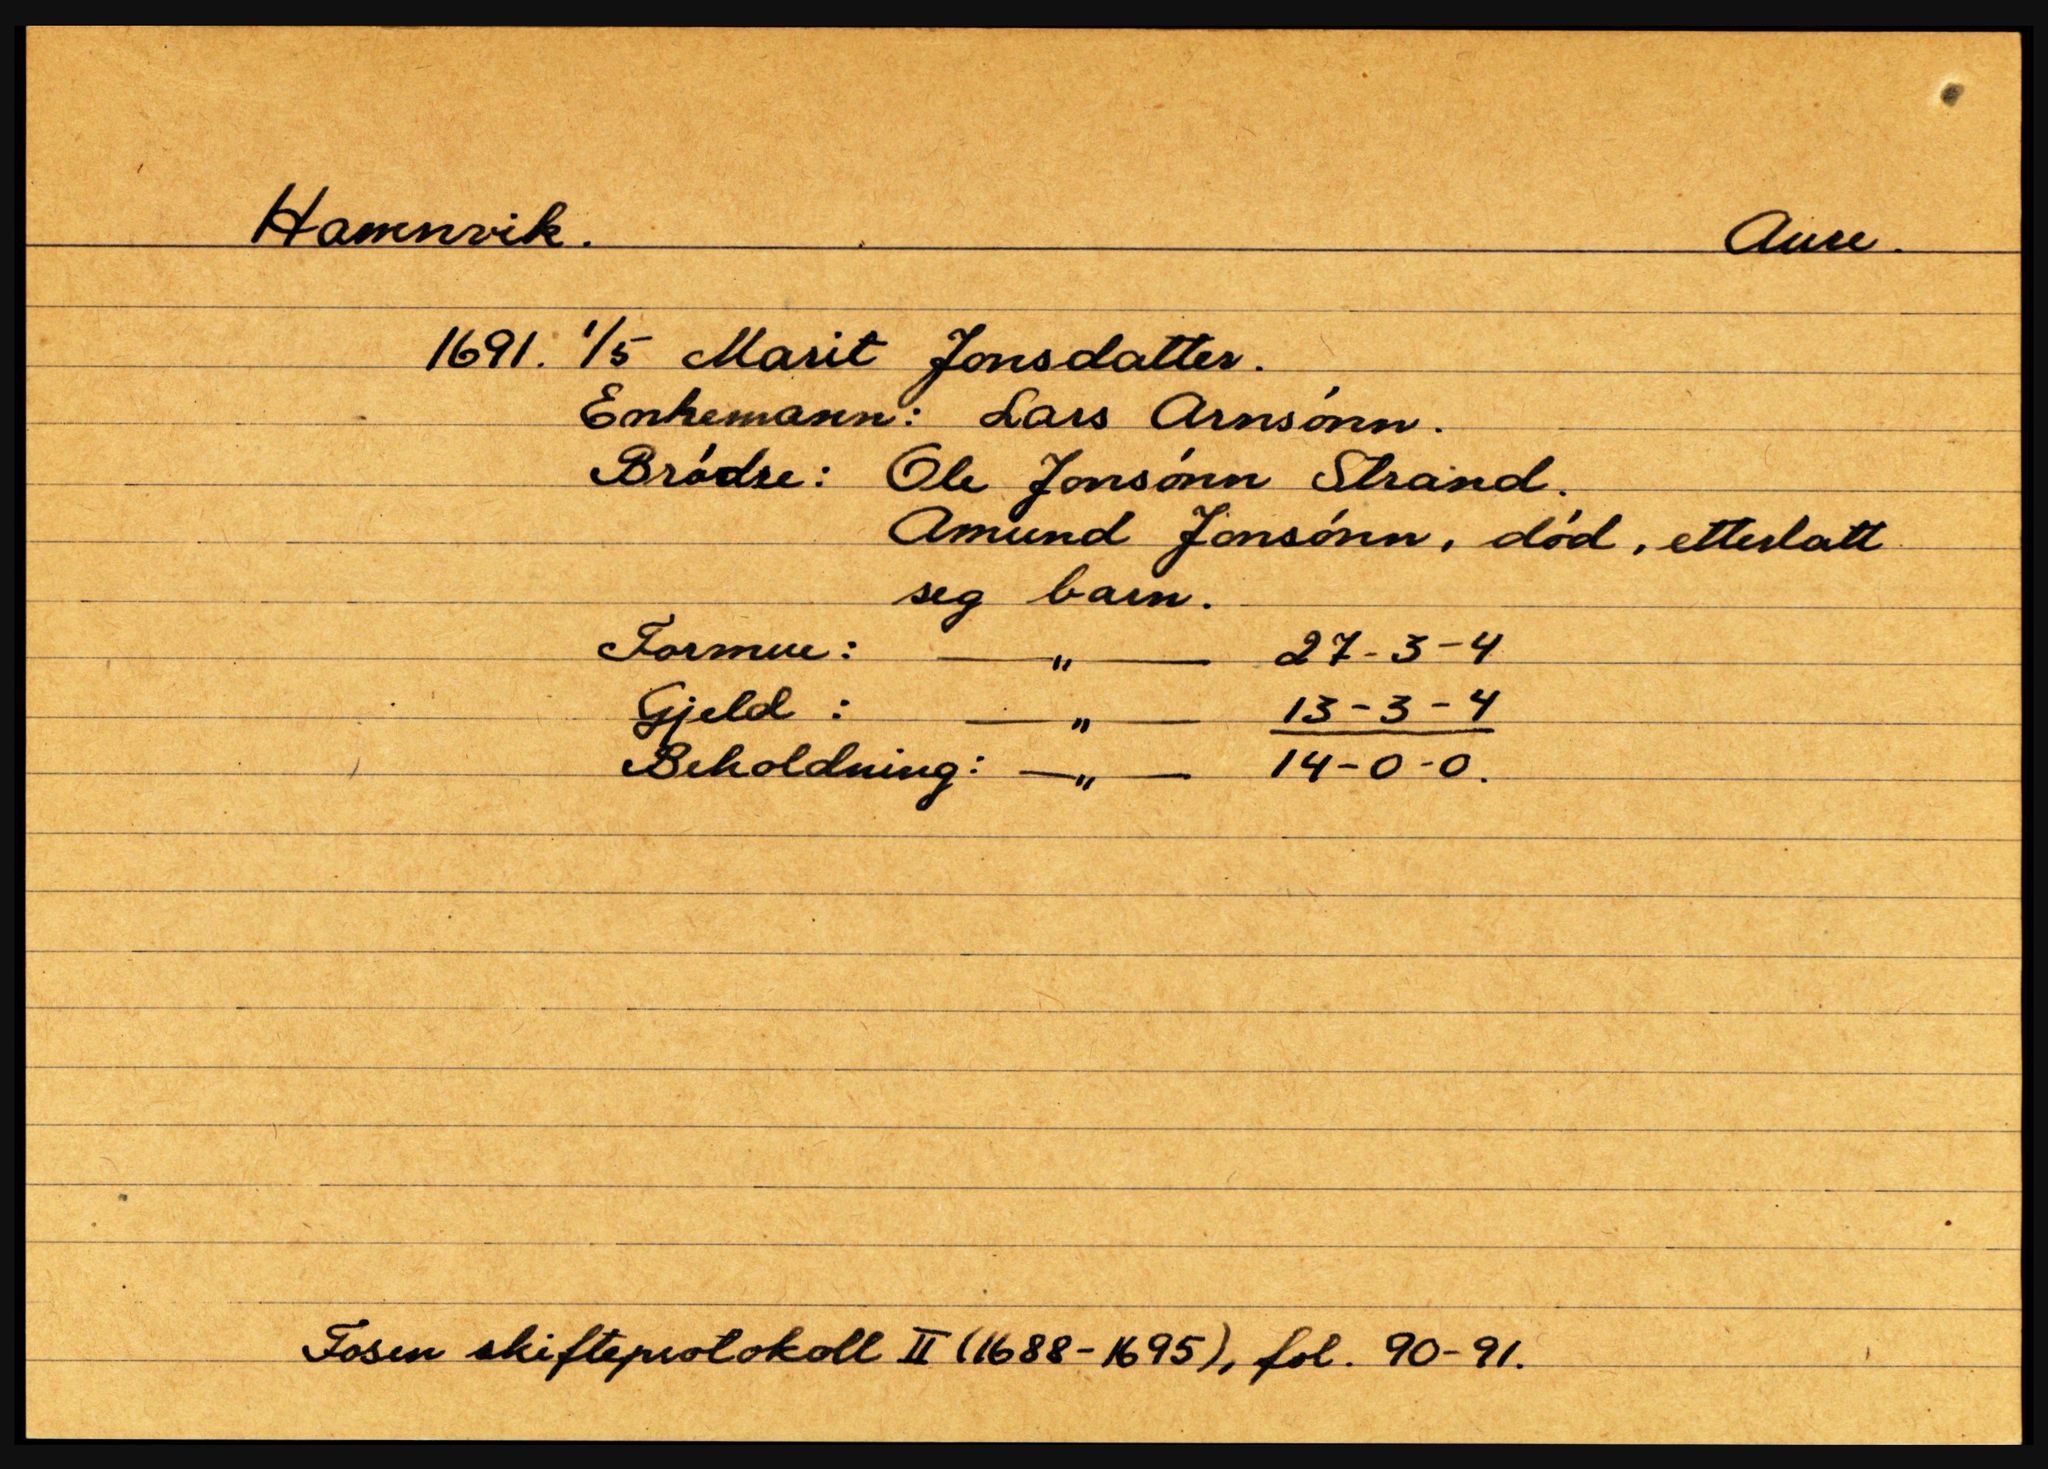 Hamnvik. Aure.
1691. 1/5 Marit Jonsdatter.
Enkemann: Lars Arnsónn.
Bródre: Ole Jonsónn Strand.
Amund Jonsónn, dód, etterlatt
seg barn.
Formue: — " — 27-3-4
Gjeld : — " — 13-3-4
Beholdning: — " — 14-0-0.
Fosen skifteprotokoll II (1688-1695), fol. 90-91.